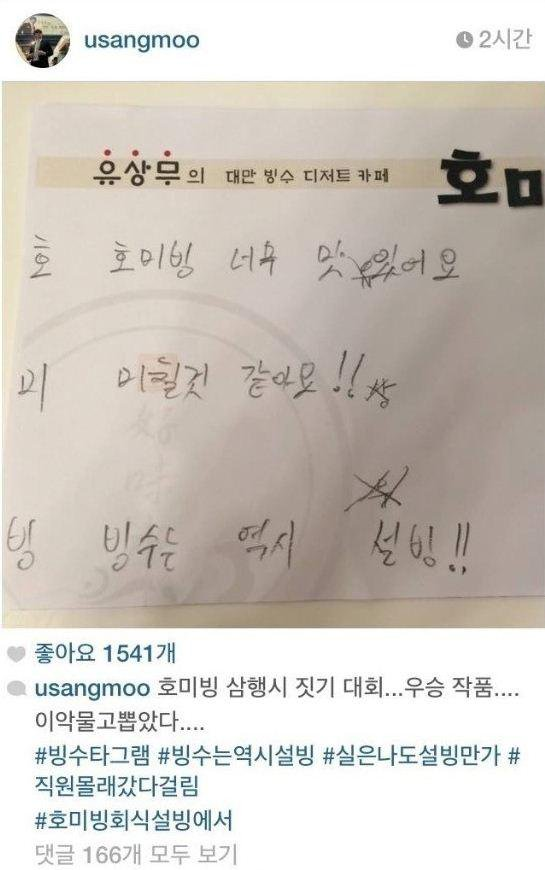 usangmoo 2시간
유상무의 대만 빙수 디저트 카페 호미
호 호미빙 너무 맛있어요
미 미칠것 같아요!!
빙 빙수는 역시 설빙!!
좋아요 1541개
usangmoo 호미빙 삼행시 짓기 대회...우승 작품....
이악물고뽑았다....
#빙수타그램 #빙수는역시설빙 #실은나도설빙만가 #
직원몰래갔다걸림
#호미빙회식설빙에서
댓글 166개 모두 보기